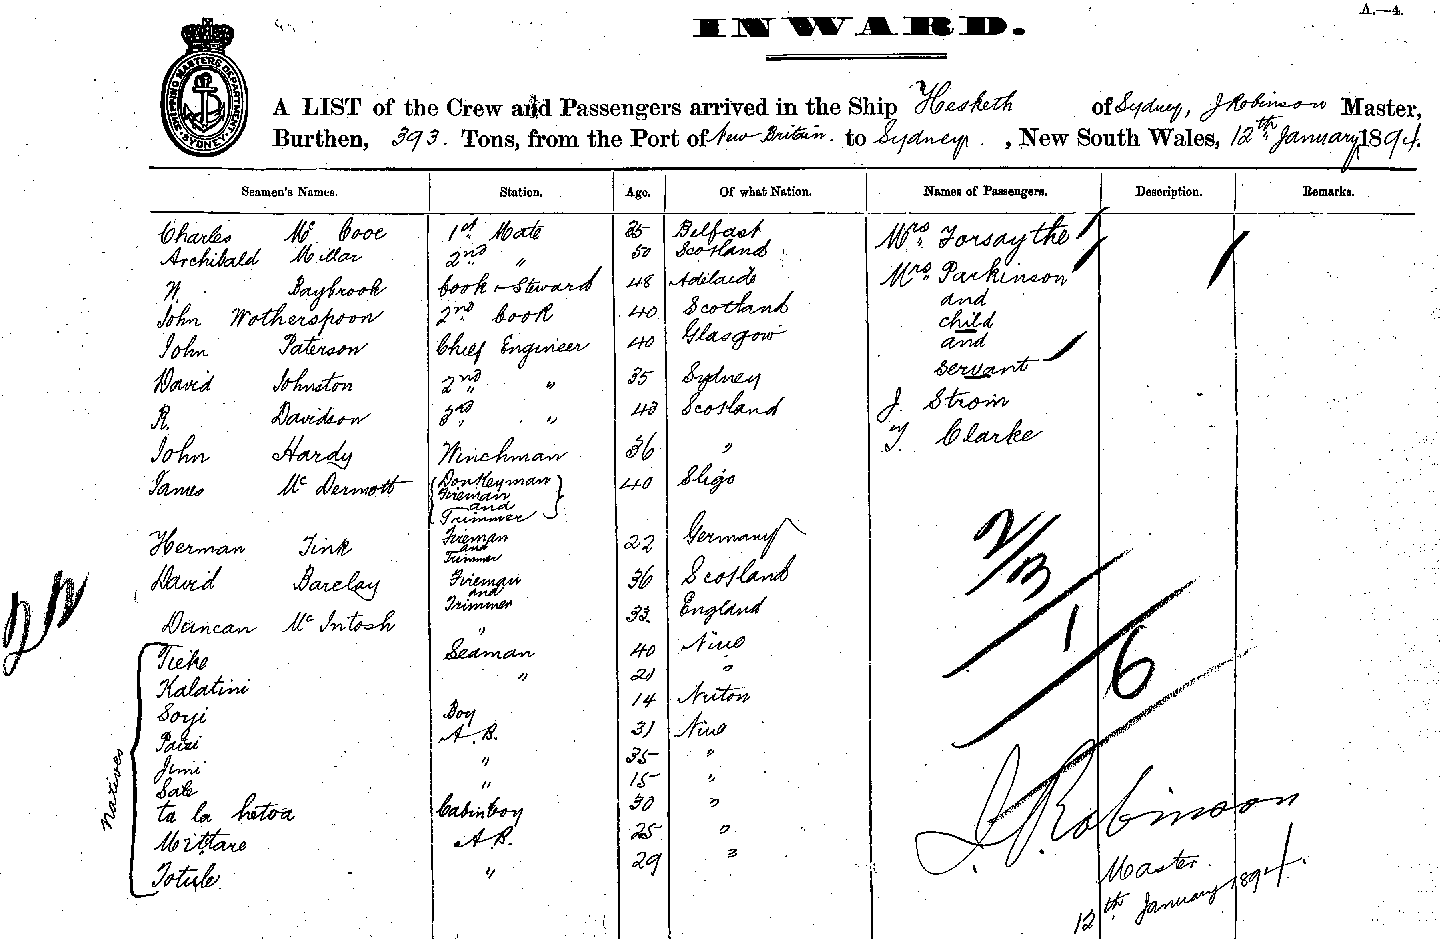 A.—4.
INWARD.
SHIPPING MASTERS DEPARTMENT SYDNEY
A LIST of the Crew and Passengers arrived in the Ship Hesketh of Sydney, J Robinson Master,
Burthen, 393. Tons, from the Port of New Britain. to Sydney. , New South Wales, 12th January 1894.
Seamen's Names. Station. Age. Of what Nation. Names of Passengers. Description. Remarks.
Charles Mc Cooe 1st Mate 35 Belfast Mrs Forsaythe
Archibald Millar 2nd " 50 Scotland
W. Baybrook Cook & Steward 48 Adelaide Mrs Parkinson
and
John Wotherspoon 2nd Cook 40 Scotland child
John Paterson Chief Engineer 40 Glasgow and
servant
David Johnston 2nd " 35 Sydney
R. Davidson 3rd " 43 Scotland J Strom
John Hardy Winchman 36 " Y Clarke
James Mc Dermott Donkeyman 40 Sligo
Fireman
and
Trimmer
Herman Fink Fireman 22 Germany
and
Trimmer
David Barclay Fireman 36 Scotland
and
Trimmer
Duncan Mc Intosh " 33. England
Natives
Tieke Seaman 40 Niue
Kalatini " 21 "
Soyi Boy 14 Niue
Paizi A.B. 31 Niue
Jimi " 35 "
Sale " 15 "
ta la hetoa Cabin boy 30 "
Mittare A.B. 25 "
Totule " 29 "
2/3
1
6
J. Robinson
Master.
12th January 1894.